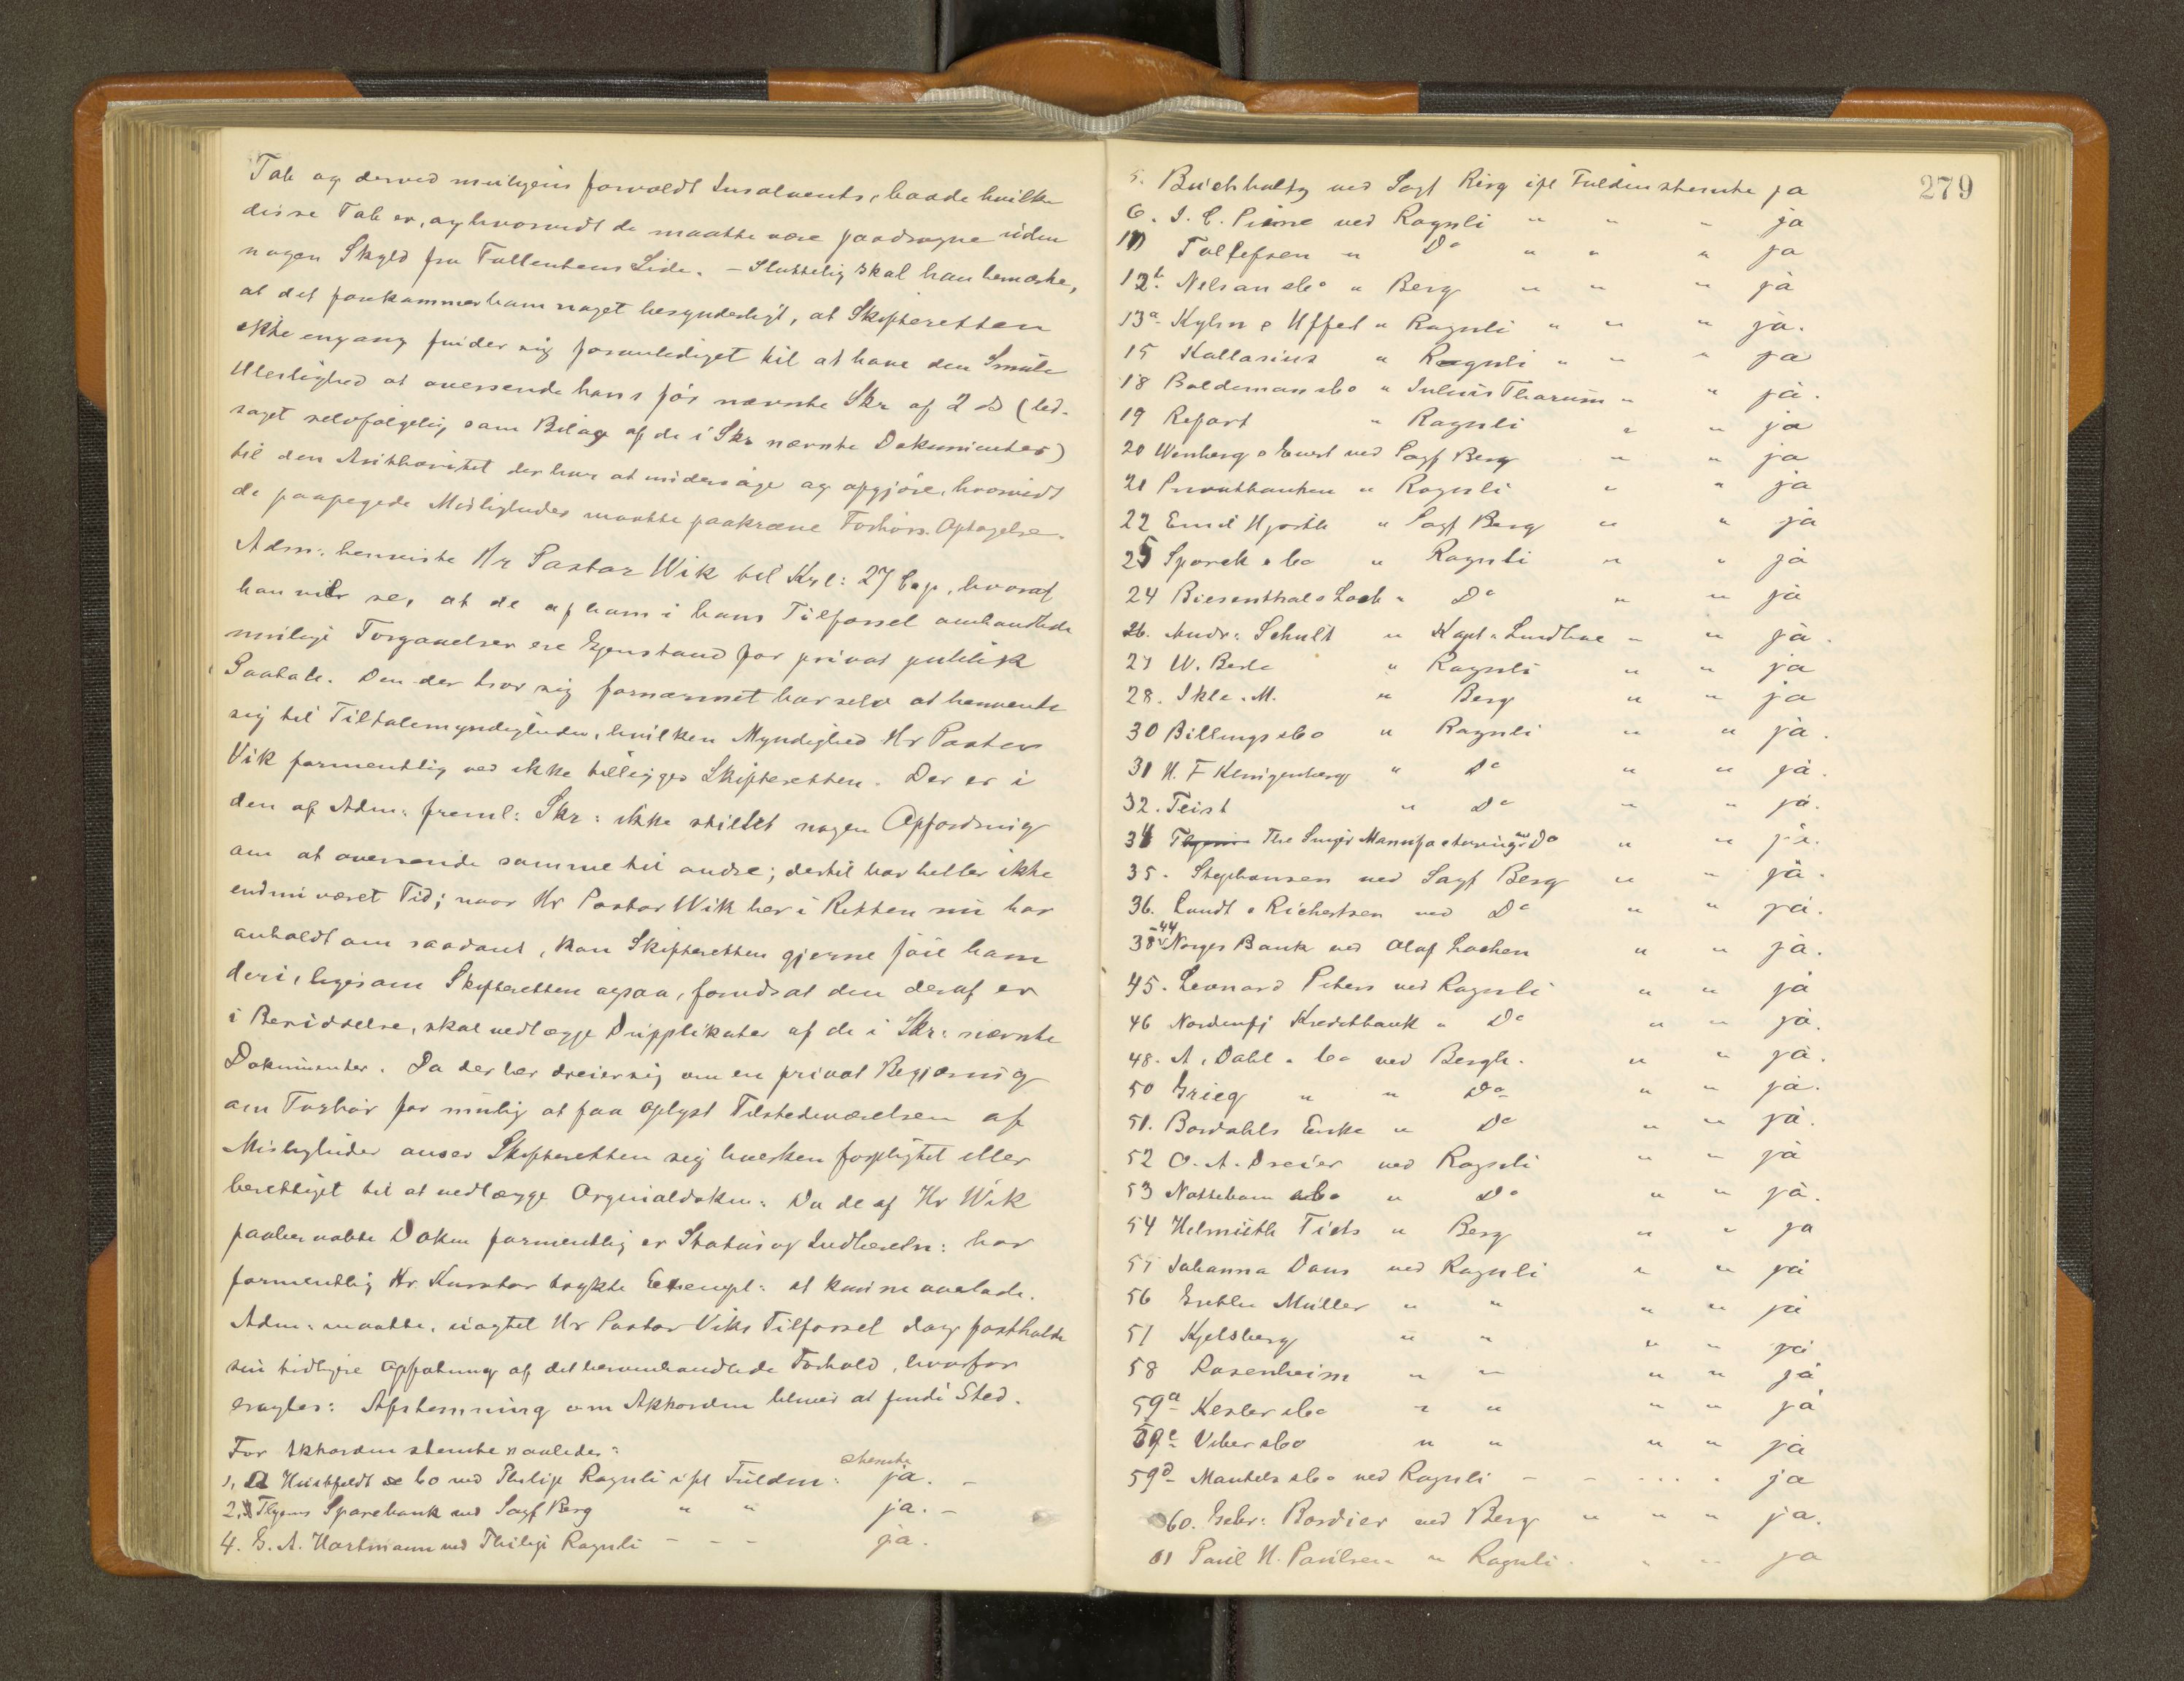 Tab og derved muligens forvoldt Insolvents, baade hvilke
disse Tab er, og hvorvidt de maatte være paadragne uden
nogen Skyld fra Fallentens Side. – Sluttelig skal han bemærke,
at det forekommer ham noget besynderligt, at Skifteretten
ikke engang finder sig foranlediget til at have den Smule
Uleilighed at oversende hans før nævnte Skr af 2 ds (led-
saget selvfølgelig som Bilage af de i Skr nævnte Dokumenter)
til den Autoritet der har at undersøge og afgjøre, hvorvidt
de paapegede Misligheder maatte paakræve Forhörs. Optagelse.
Adm: henviste Hr Pastor Wik til Krl: 27 Cap, hvoraf
han vil se, at de af ham i hans Tilførsel omhandlede
mulige Forgaaelser ere Gjenstand for privat publisk
Paatale. Den der tror sig fornærmet har selv at henvende
sig til Tiltalemyndigheden, hvilken Myndighed Hr Pastor
Vik formentlig ved ikke tillægges Skifteretten. Der er i
den af Adm: freml: Skr: ikke stillet nogen Opfordring
om at oversende samme til andre; dertil har heller ikke
endnu været Tid; naar Hr Pastor Wik her i Retten nu har
anholdt om saadant, kan Skifteretten gjerne föie ham
deri, ligesom Skifteretten ogsaa, forudsat den deraf er
i Besiddelse, skal vedlægge Dupplikater af de i Skr: nævnte
Dokumenter. Da der her dreier sig om en privat Begjæring
om Forhör for mulig at faa oplyst Tilstedeværelsen af
Misligheder anser Skifteretten sig hverken forpligtet eller
berettiget til at vedlægge Orginaldokm: Da de af Hr Wik
paaberaabte Dokm formentlig er Status og Indberetn: har
formentlig Hr. Kurator trykte Exempl: at kunne avelade.
Adm: maatte, uagtet Hr Pastor Viks Tilførsel dog fastholde
sin tidligere Opfatning af det heromhandlede Forhold, hvorfor
eragter: Afstemning om Akkorden bliver at finde Sted.
For Akkorden stemte saaledes:
1, 2 Hirschfeldt & Co ved Philip Rognli ifl Fuldm: stemte ja. –
2, Thyems Sparebank ved Sagf Berg " " ja. –
4. G. A. Hartmann ved Philip Rognli – – – ja.
279
5. Buchholtz ved Sagf Berg ifl Fuldm stemte ja
6. J. C. Pinne ved Rognli " " " ja
11 Tollefsen " Do " " " ja
12b. Nelson & Co " Berg " " " ja
13a. Kylin & Uffel " Rognli " " " ja.
15 Kallarius " Rognli " " " ja
18 Boldeman & Co " Julius Thorum " " ja.
19 Refart " Rognli " " ja
20 Wenberg & Ewert ved Sagf Berg " " ja
21 Privatbanken " Rognli " " ja
22 Emil Hjorth " Sagf Berg " " ja
25 Sporck & Co " Rognli " " ja
24 Biesenthal & Loch " Do " " ja
26. Andr: Schult " Kapt. Lindboe " " ja.
27 W. Berle " Rognli " " ja
28. Ikle. M. " Berg " " ja
30 Billings & Co " Rognli " " ja.
31 H. F Klingenberg " Do " " ja.
32. Teist " Do " " ja.
34 The Singer Manufacturing " Do " " ja.
35. Stephansen ved Sagf Berg " " ja.
36. Lundt & Richertsen ved Do " " ja.
38-44 Norges Bank ved Olaf Lochen " " ja.
45. Leonard Peters ved Rognli " " ja
46 Nordenfj Kreditbank " Do " " ja.
48. A. Dahl & Co ved Bergh. " " ja.
50 Grieg " " Do " " ja.
51. Bordahls Enke " Do " " ja.
52 O. A. Dreier ved Rognli " " ja
53 Notteham & Co " Do " " ja.
54 Helmuth Tiets " Berg " " ja
55 Johanna Dons ved Rognli " " ja
56 Grebler Müller " " " " ja
57 Kjelsberg " " " " ja
58 Rosenheim " " " " ja
59a Kesler & Co " " " " ja
59c Viber & Co " " " " ja
59d Mantels & Co ved Rognli – – . . . . ja
60. Gebr: Bordier ved Berg " " " ja.
61 Paul H. Paulsen " Rognli. " " ja